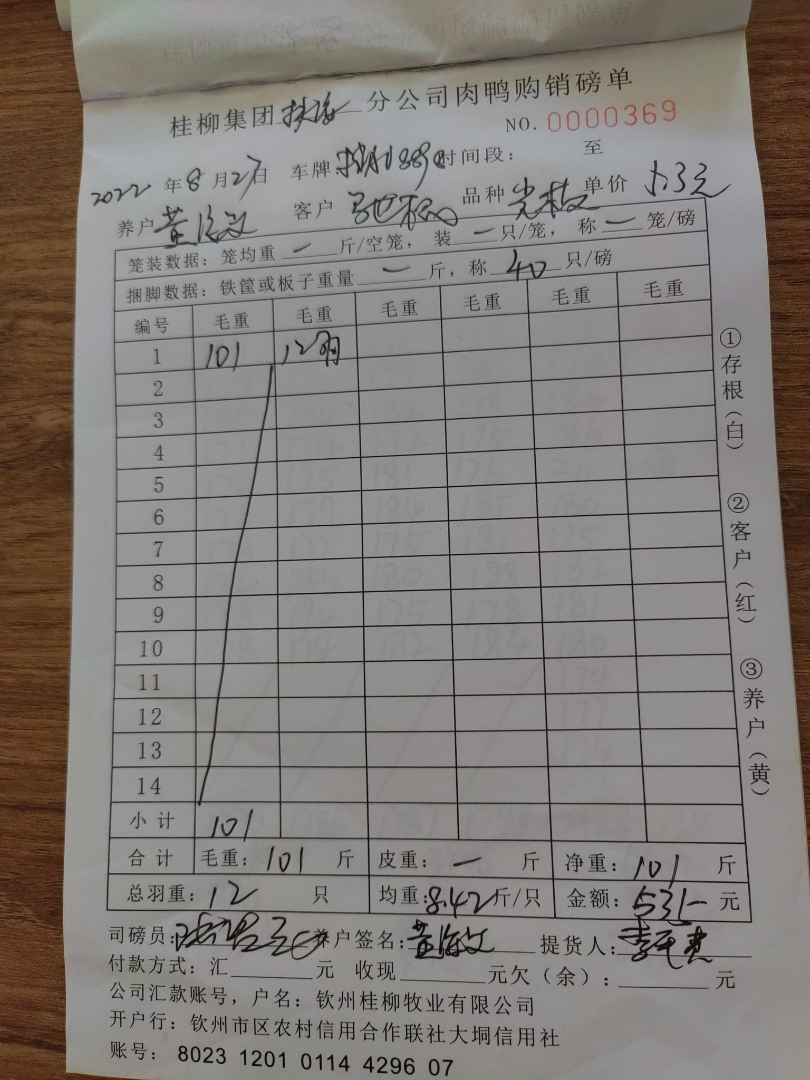 桂柳集团 分公司肉鸭购销磅单
NO. 0000369
2022 年 8 月 27 日 车牌 时间段: 至
养户 黄海文 客户 品种 单价 5.3元
笼装数据: 笼均重 一 斤/空笼, 装 一 只/笼, 称 一 笼/磅
捆脚数据: 铁筐或板子重量 一 斤, 称 40 只/磅
编号 毛重 毛重 毛重 毛重 毛重 毛重
1 101 12羽
2
3
4
5
6
7
8
9
10
11
12
13
14
小计 101
合计 毛重: 101 斤 皮重: 一 斤 净重: 101 斤
总羽重: 12 只 均重: 8.42 斤/只 金额: 535- 元
司磅员: 养户签名: 黄海文 提货人:
付款方式: 汇 元 收现 元欠(余): 元
公司汇款账号, 户名: 钦州桂柳牧业有限公司
开户行: 钦州市区农村信用合作联社大垌信用社
账号: 8023 1201 0114 4296 07
①存根(白)
②客户(红)
③养户(黄)